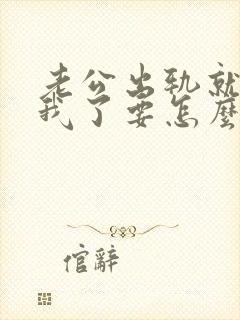 老公出轨就
我了要怎麼
倌辭